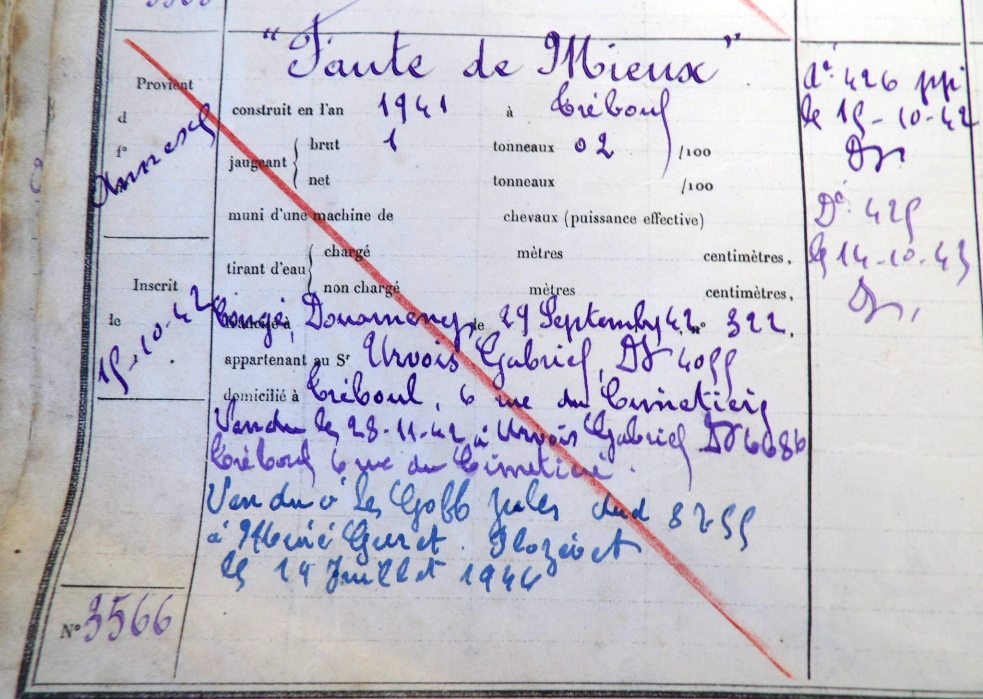 "Faute de Mieux"
Provient
d
f°
Annexe
construit en l'an 1941 à Tréboul
jaugeant { brut 1 tonneaux 02 /100
net tonneaux /100
muni d'une machine de chevaux (puissance effective)
tirant d'eau { chargé mètres centimètres,
non chargé mètres centimètres,
Congé, Douarnenez, le 29 Septembre 42, n° 322.
appartenant au Sr Urvois Gabriel, DZ 4099
domicilié à Tréboul, 6 rue du Cimetière
Vendu le 28-11-42 à Urvois Gabriel DZ 6086
Tréboul 6 rue du Cimetière.
Vendu à Le Goff Jules
à Plozévet
le 14 Juillet 1944
Inscrit
le
15-10-42
N° 3566
426
le 15-10-42
425
le 14-10-43